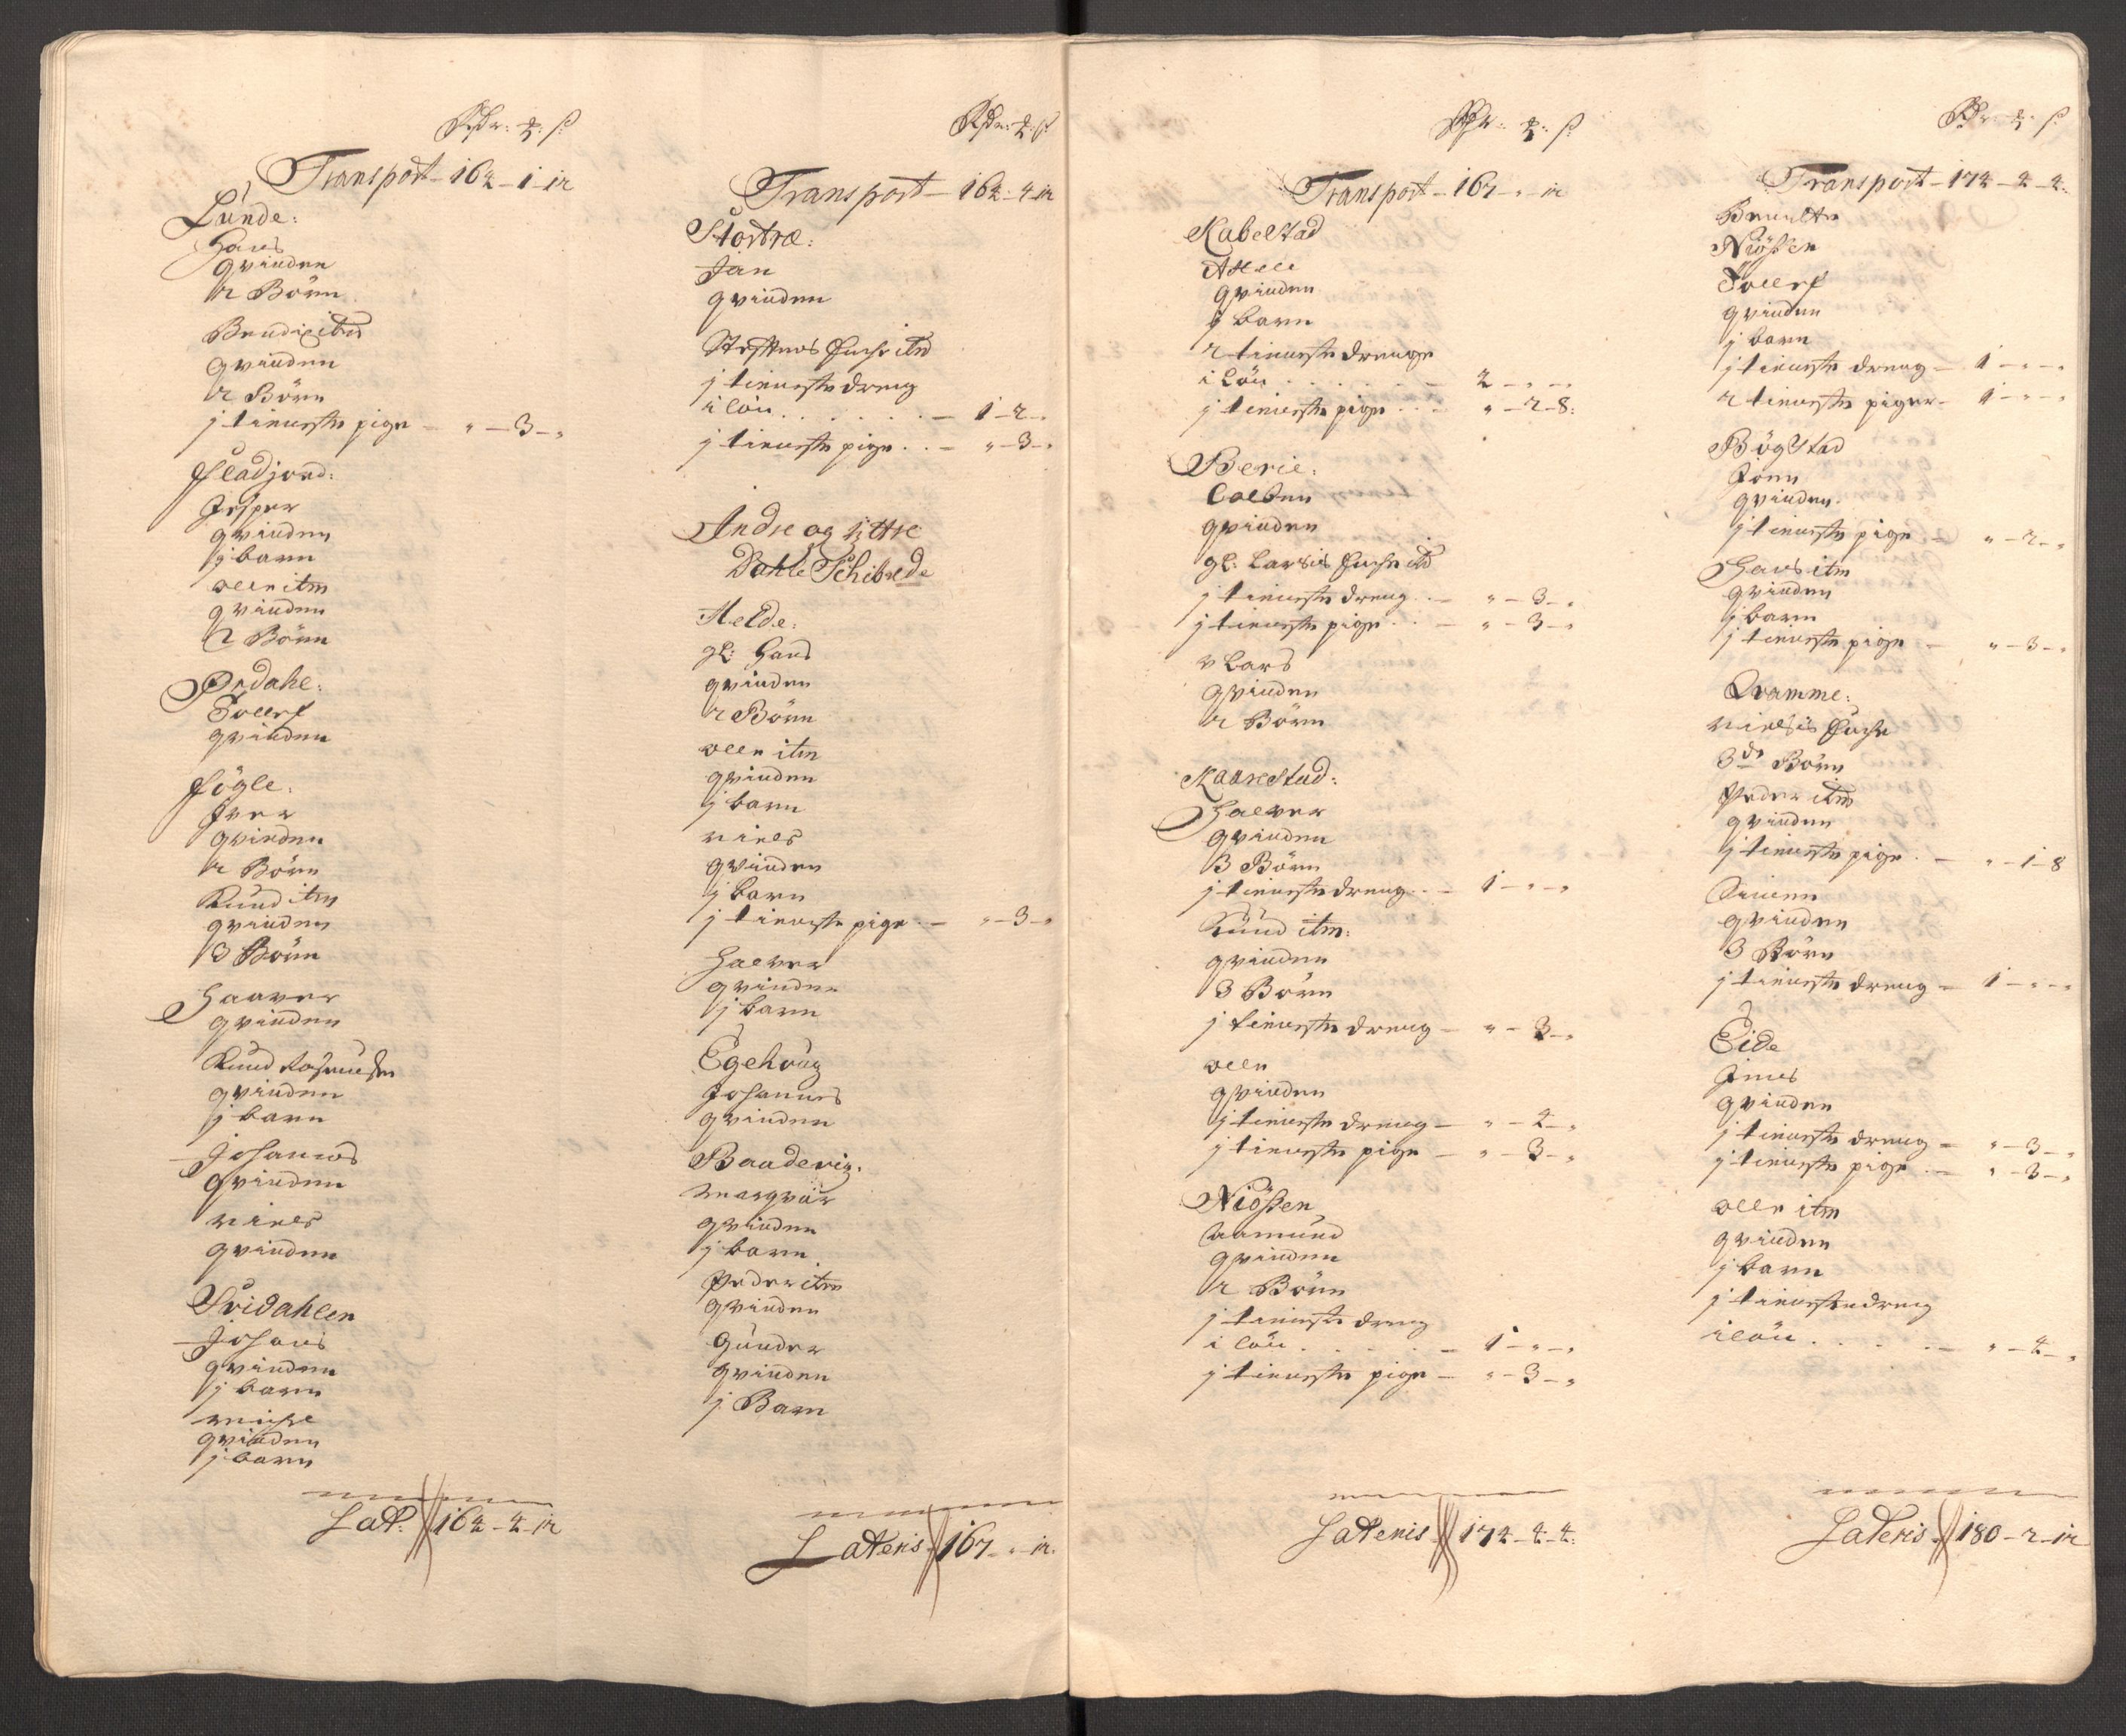 Rdr: ₰: ß:
Transport - 164 - 1 - 12
Lunde:
Hans
qvinden
2 Börn
Bendix itm
qvinden
2 Börn
j tieneste pige - " - 3 - "
fladjord:
Jesper
qvinden
j barn
olle itm
qvinden
2 Börn
Ørdahl:
Tollef
qvinden
fögle:
Iver
qvinden
2 Börn
Knud itm
qvinden
3 Börn
Haaver
qvinden
Knud Rasmusen
qvinden
j barn
Johannes
qvinden
niels
qvinden
Svidahlen
Johans
qvinden
j barn
qvinden
j barn
Lat: 164 - 4 - 12
Rdr: ₰: ß:
Transport - 164 - 4 - 12
Stortræ:
Jan
qvinden
Steffens Encke itm
j tieneste dreng
i lön . . . . . . - 1 - 2 - "
j tieneste pige . . - " - 3 - "
Indre og yttre
Dahle Schibrede
Melde:
gl: Hans
qvinden
2 Börn
olle itm
qvinden
j barn
niels
qvinden
j barn
j tieneste pige . - " - 3 - "
Halver
qvinden
j barn
Egehoug
Johannes
qvinden
Baadeviig:
Marqvar
qvinden
j barn
Peder itm
qvinden
Gunder
qvinden
j Barn
Lateris 167 - " - 12
Rdr: ₰: ß:
Transport - 167 - " - 12
Kabelstad
Attle
qvinden
j barn
2 tieneste drenge
i lön . . . . . . - 2 - " - "
j tieneste pige . . - " - 2 - 8:
Berie:
Colben
qvinden
gl: Larsis Encke itm
j tieneste dreng . - " - 3 - "
j tieneste pige . . - " - 3 - "
Lars
qvinden
2 Börn
Kaarestad:
Halver
qvinden
3 Börn
j tieneste dreng . - 1 - " - "
Knud itm:
qvinden
3 Börn
j tieneste dreng - " - 3 - "
olle
qvinden
j tieneste dreng - " - 4 - "
j tieneste pige - " - 3 - "
Niößen
Aamund
qvinden
2 Börn
j tieneste dreng
i lön . . . . . - 1 - " - "
j tieneste pige - " - 3 - "
Lateris 174 - 4 - 4:
Rdr: ₰: ß:
Transport - 174 - 4 - 4:
Niößen
Tollef
qvinden
j barn
j tieneste dreng - 1 - " - "
2 tieneste piger - 1 - " - "
Bögstad
Jöen
qvinden
j tieneste pige - " - 2 - "
Hans itm
qvinden
j barn
j tieneste pige - " - 3 - "
Qvamme:
nielsis Encke
3de Börn
Peder itm
qvinden
j tieneste pige . - " - 1 - 8
Simen
qvinden
3 Börn
j tieneste dreng - 1 - " - "
Eide
Jens
qvinden
j tieneste dreng - " - 3 - "
j tieneste pige . - " - 3 - "
olle itm
qvinden
j barn
j tieneste dreng
i lön . . . . . - " - 4 - "
Lateris 180 - 2 - 12